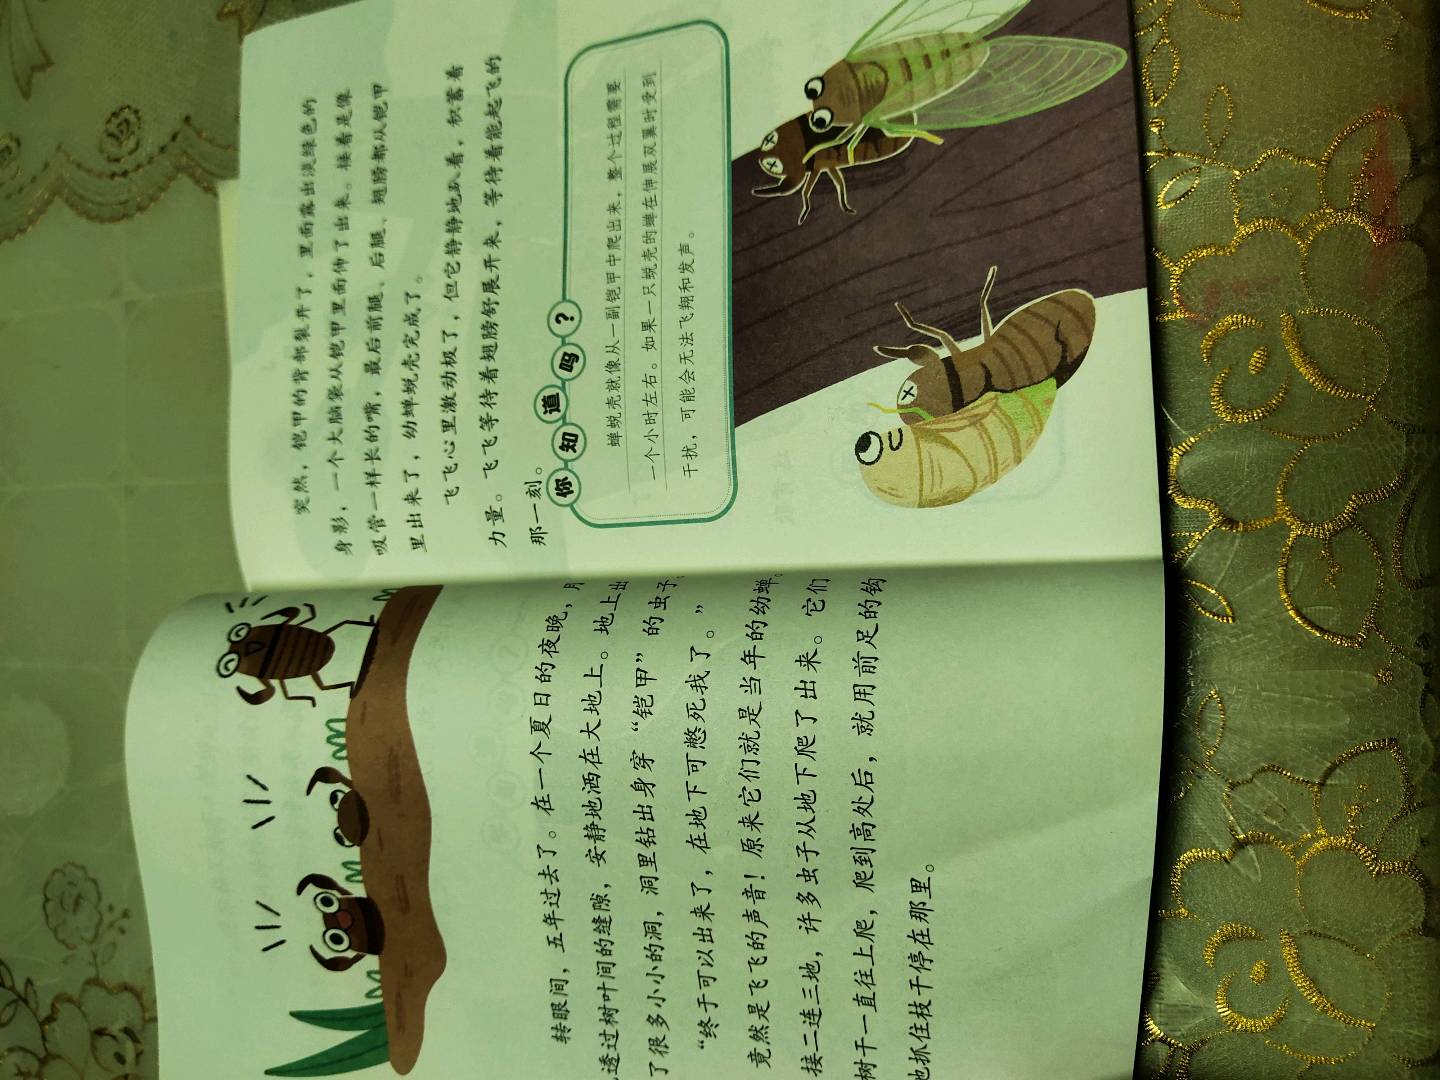 转眼间，五年过去了。在一个夏日的夜晚，月
透过树叶间的缝隙，安静地洒在大地上。地上出
了很多小小的洞，洞里钻出身穿“铠甲”的虫子。
“终于可以出来了，在地下可憋死我了。”
竟然是飞飞的声音！原来它们就是当年的幼蝉。
接二连三地，许多虫子从地下爬了出来。它们
树干一直往上爬，爬到高处后，就用前足的钩
地抓住枝干停在那里。
突然，铠甲的背部裂开了，里面露出淡绿色的
身影，一个大脑袋从铠甲里面伸了出来。接着是像
吸管一样长的嘴，最后前腿、后腿、翅膀都从铠甲
里出来了，幼蝉蜕壳完成了。
飞飞心里激动极了，但它静静地趴着，积蓄着
力量。飞飞等待着翅膀舒展开来，等待着能起飞的
那一刻。
你知道吗？
蝉蜕壳就像从一副铠甲中爬出来，整个过程需要
一个小时左右。如果一只蜕壳的蝉在伸展双翼时受到
干扰，可能会无法飞翔和发声。